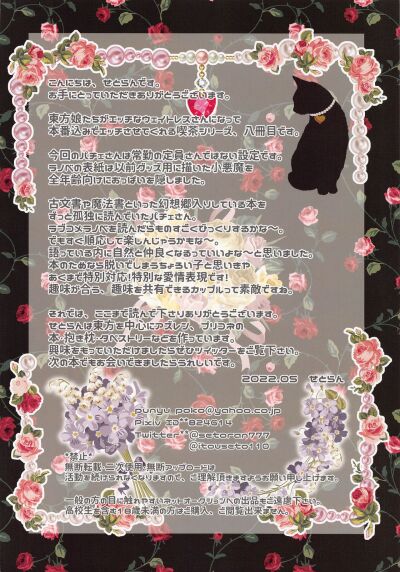 こんにちは、せとらんです。
お手にとっていただきありがとうございます。
東方娘たちがエッチなウェイトレスさんになって
本番込みでエッチさせてくれる喫茶シリーズ、八冊目です。
今回のパチェさんは常勤の定員さんではない設定です。
ラノベの表紙は以前グッズ用に描いた小悪魔を
全年齢向けにおっぱいを隠しました。
古文書や魔法書といった幻想郷入りしている本を
ずっと孤独に読んでいたパチェさん。
ラブコメラノベを読んだらものすごくびっくりするかな〜。
でもすぐ順応して楽しんじゃうかもな〜。
語っている内に自然と仲良くなるっていいよな〜と思いました。
本のためなら脱いでしまうちょろい子と思いきや
あくまで特別対応!特別な愛情表現です!
趣味が合う、趣味を共有できるカップルって素敵ですね。
それでは、ここまで読んで下さりありがとうございます。
せとらんは東方を中心にアズレン、プリコネの
本・抱き枕・タペストリーなどを作っています。
興味をもっていただけましたらぜひツイッターをご覧下さい。
次の本でもお会いできましたらうれしいです。
2022.05 せとらん
punyu_poko@yahoo.co.jp
Pixiv ID**824814
Twitter**@setoran777
@itouseto110
*禁止*
無断転載 二次使用 無断アップロードは
活動を続けられなくなりますので、ご理解頂きますようお願い申し上げます。
一般の方の目に触れやすいネットオークションへの出品もご遠慮下さい。
高校生を含む18歳未満の方はご購入、ご閲覧出来ません。